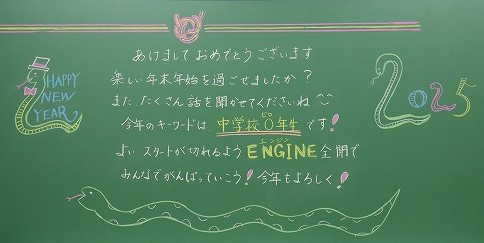 あけまして おめでとうございます
楽しい年末年始を過ごせましたか？
また、たくさん話を聞かせてくださいね
今年のキーワードは 中学校0年生 です！
ゼロ
よい スタートが切れるよう ENGINE 全開で
エンジン
みんなでがんばっていこう！今年もよろしく！
HAPPY
NEW
YEAR
2025